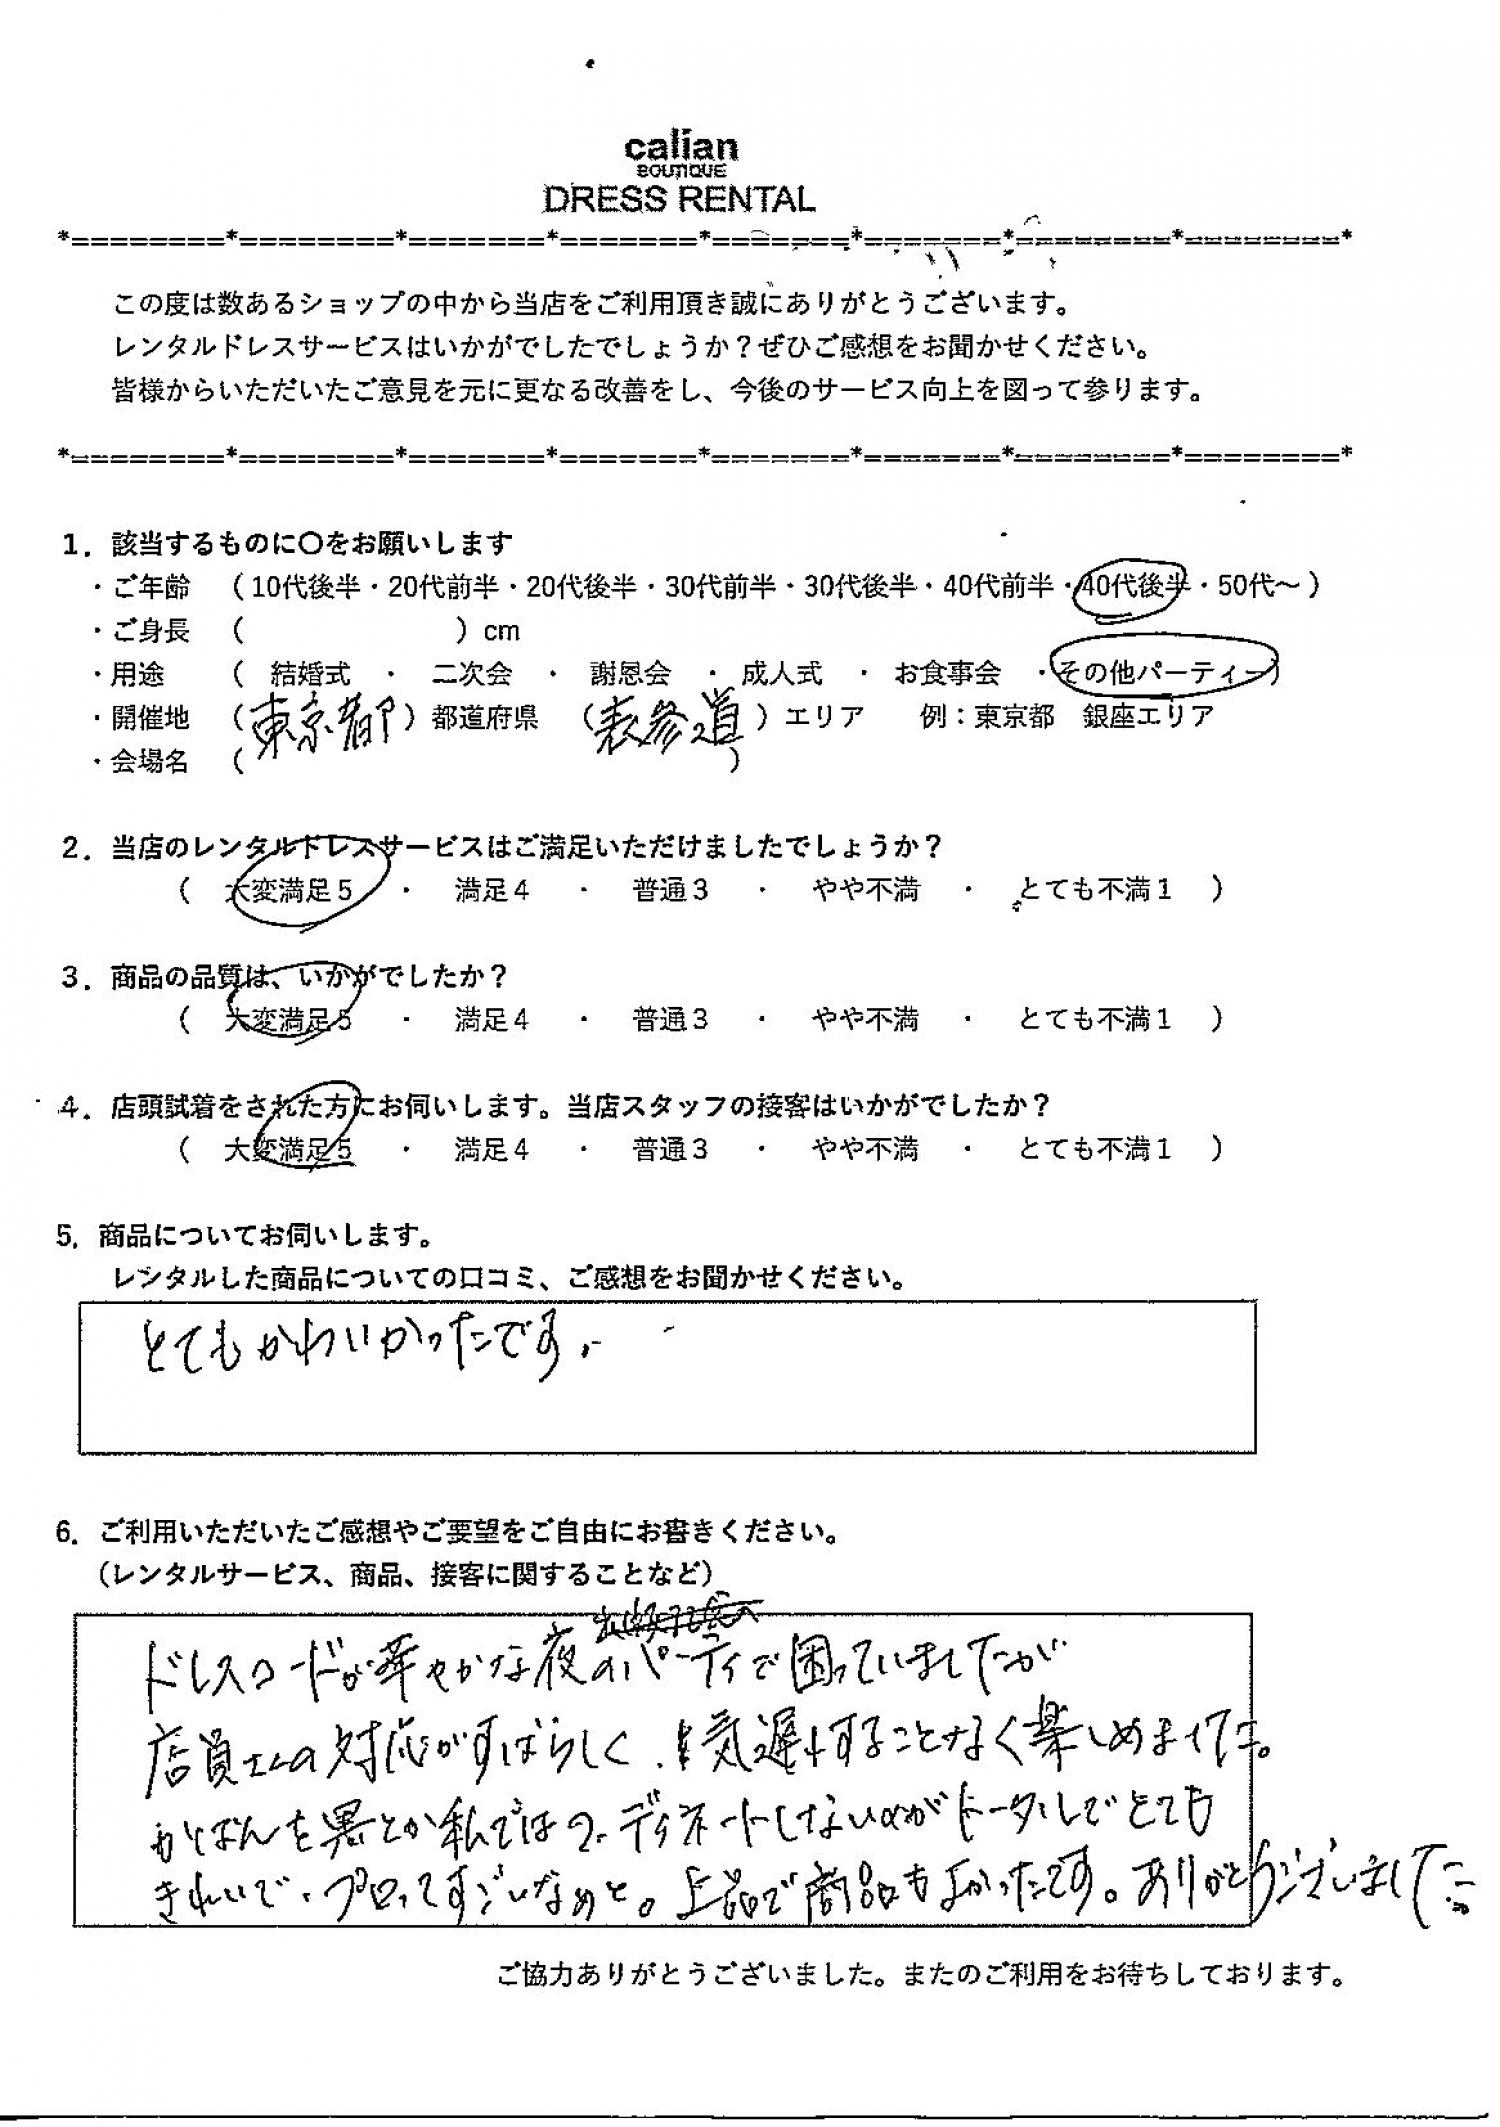 calian
BOUTIQUE
DRESS RENTAL
*========*========*=======*=======*=======*=======*========*========*
この度は数あるショップの中から当店をご利用頂き誠にありがとうございます。
レンタルドレスサービスはいかがでしたでしょうか？ぜひご感想をお聞かせください。
皆様からいただいたご意見を元に更なる改善をし、今後のサービス向上を図って参ります。
*========*========*=======*=======*=======*=======*========*========*
1．該当するものに〇をお願いします
・ご年齢 （ 10代後半・20代前半・20代後半・30代前半・30代後半・40代前半・40代後半・50代～ ）
・ご身長 （ ）cm
・用途 （ 結婚式 ・ 二次会 ・ 謝恩会 ・ 成人式 ・ お食事会 ・その他パーティー）
・開催地 （東京都）都道府県 （表参道）エリア 例：東京都 銀座エリア
・会場名 （ ）
2．当店のレンタルドレスサービスはご満足いただけましたでしょうか？
（ 大変満足５ ・ 満足４ ・ 普通３ ・ やや不満 ・ とても不満１ ）
3．商品の品質は、いかがでしたか？
（ 大変満足５ ・ 満足４ ・ 普通３ ・ やや不満 ・ とても不満１ ）
4．店頭試着をされた方にお伺いします。当店スタッフの接客はいかがでしたか？
（ 大変満足５ ・ 満足４ ・ 普通３ ・ やや不満 ・ とても不満１ ）
5．商品についてお伺いします。
レンタルした商品についての口コミ、ご感想をお聞かせください。
とてもかわいかったです。
6．ご利用いただいたご感想やご要望をご自由にお書きください。
（レンタルサービス、商品、接客に関することなど）
ドレスコードが華やかな夜のパーティで困っていましたが
店員さんの対応がすばらしく、気遅れすることなく楽しめました。
かばんを黒とか私ではコーディネートしないのがトータルでとても
きれいで、プロってすごいなぁと。上品で商品もよかったです。ありがとうございました
ご協力ありがとうございました。またのご利用をお待ちしております。